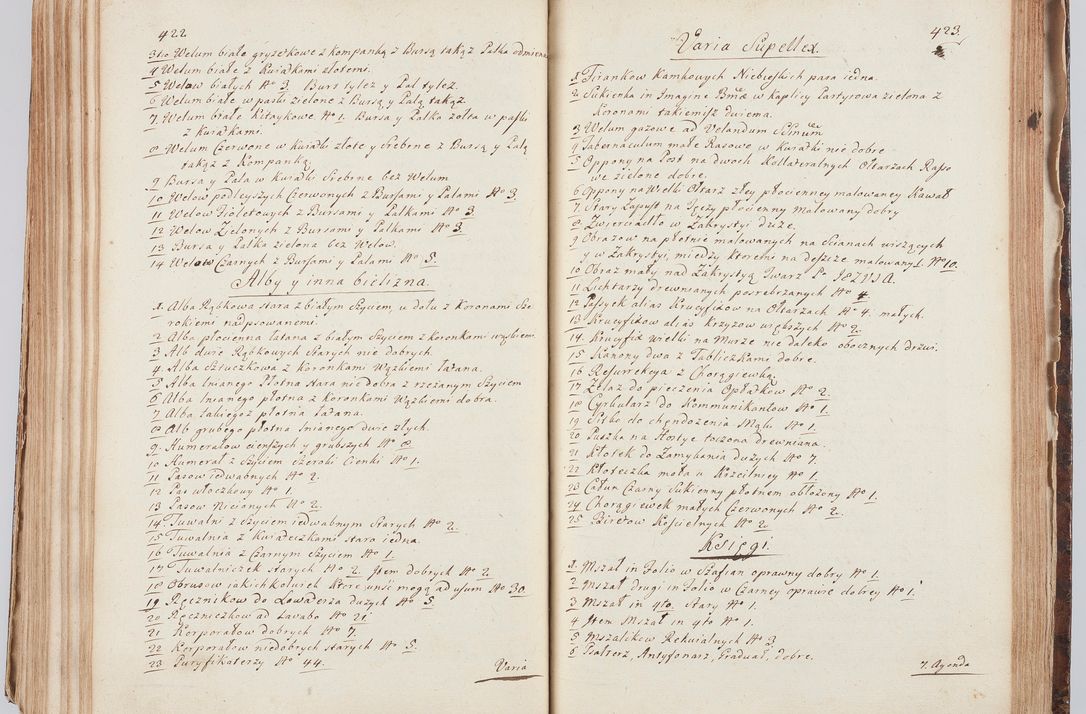 422
3tio Welum białe gryzetkowe z kompanką z Bursą takąż Palka odmienna
4 Welum białe z Kwiatkami złotemi.
5 Welow białych No 3. Burs tyleż y Pal tyleż.
6 Welum białe w paski zielone z Bursą y Palą takąż
7. Welum białe Kitaykowe No 1. Bursa y Palka żołta w paski
z kwiatkami.
8 Welum Czerwone w kwiatki złote y srebrne z Bursą y Palą
takąż z Kompanką.
9 Bursa y Pala w kwiatki srebrne bez Welum
10 Welow podleyszych Czerwonych z Bursami y Palami No 3.
11 Welow Fioletowych z Bursami y Palkami No 3.
12 Welow Zielonych z Bursami y Palkami No 3
13 Bursa y Palka zielona bez Welow.
14 Welow Czarnych z Bursami y Palami No 5.
Alby y inna bielizna.
1. Alba Rąbkowa stara z białym Szyciem, u dołu z Koronami Sze-
rokiemi nadpsowanemi.
2 Alba płocienna łatana z białym Szyciem z koronkami wązkiemi.
3 Alb dwie Rąbkowych starych nie dobrych.
4. Alba Sztuczkowa z koronkami Wązkiemi łatana.
5 Alba lnianego Płotna stara nie dobra z rzezanym Szyciem
6 Alba lnianego płotna z koronkami Wązkiemi dobra.
7 Alba takiegoż płotna łatana.
8 Alb grubego płotna lnianego dwie złych.
9. Humerałow cienszych y grubszych No 8.
10 Humerał z Szyciem szeroki Cienki No 1.
11 Pasow iedwabnych No 2.
12 Pas włoczkowy No 1.
13 Pasow Nicianych No 2.
14 Tuwalni z Szyciem iedwabnym starych No 2.
15 Tuwalnia z kwiateczkami stara iedna.
16 Tuwalnia z Czarnym Szyciem No 1.
17 Tuwalniczek starych No 2. Item dobrych No 2.
18 Obrusow jakichkolwiek ktore unść mogą ad usum No 30.
19 Ręcznikow do Lowaterza dużych No 5.
20 Ręczniczkow ad Lavabo No 21.
21 Korporałow dobrych No 7.
22 Korporałow niedobrych starych No 5.
23 Puryfikaterzy No 44.
Varia
423
Varia Supellex
1 Firankow Kamkowych Niebieskich para iedna.
2 Sukienka in Imagine Bmæ w kaplicy Partyrowa zielona z
Koronami takiemisz dwiema.
3 Welum gazowe ad Velandum
4 Tabernaculum małe Rasowe w kwiatki nie dobre.
5 Oppony na Post na dwoch Kollateralnych Ołtarzach Raso-
we zielone dobre.
6 Oppony na Wielki Ołtarz złey płocienney malowaney Kawał
7 Stary Zapust na płocienny Malowany dobry
8 Zwierciadło w Zakrystyi duże.
9 Obrazow na płotnie malowanych na Scianach wiszących
y w Zakrystyi, między ktoremi na deszce malowany 1. No 10.
10 Obraz mały nad Zakrystyą Twarz Pa JEZUSA.
11 Lichtarzy drewnianych posrebrzanych No 4.
12 Passyek alias Krucyfixow na Ołtarzach No 4. małych.
13 Krucyfixow alias krzyzow większych No 2.
14. Krucyfix wielki na Murze nie daleko obocznych drzwi.
15 Kanony dwa z Tabliczkami dobre.
16 Resurrekcya z Chorągiewką.
17 Zelaz do pieczenia Opłatkow No 2.
18 Cyrkularz do Kommunikantow No 1.
19 Sitko do chędożenia Mąki No 1.
20 Puszka na Hostye toczona drewniana.
21 Kłotek do Zamykania Dużych No 7
22 Kłoteczka mała u Krzcilnicy No 1.
23 Całun Czarny Sukienny płotnem obłożony No 1.
24 Chorągiewek małych Czerwonych No 2.
25 Biretow Kościelnych No 2.
Księgi.
1. Mszał in Folio w Szafian oprawny dobry No 1.
2 Mszał drugi in Folio w Czarney oprawie dobrey No 1.
3 Mszał in 4to. stary No 1.
4 Item Mszał in 4to No 1.
5 Mszalikow Rekwialnych No 3
6 Psałterz, Antyfonarz, Graduał, dobre.
7. Agenda